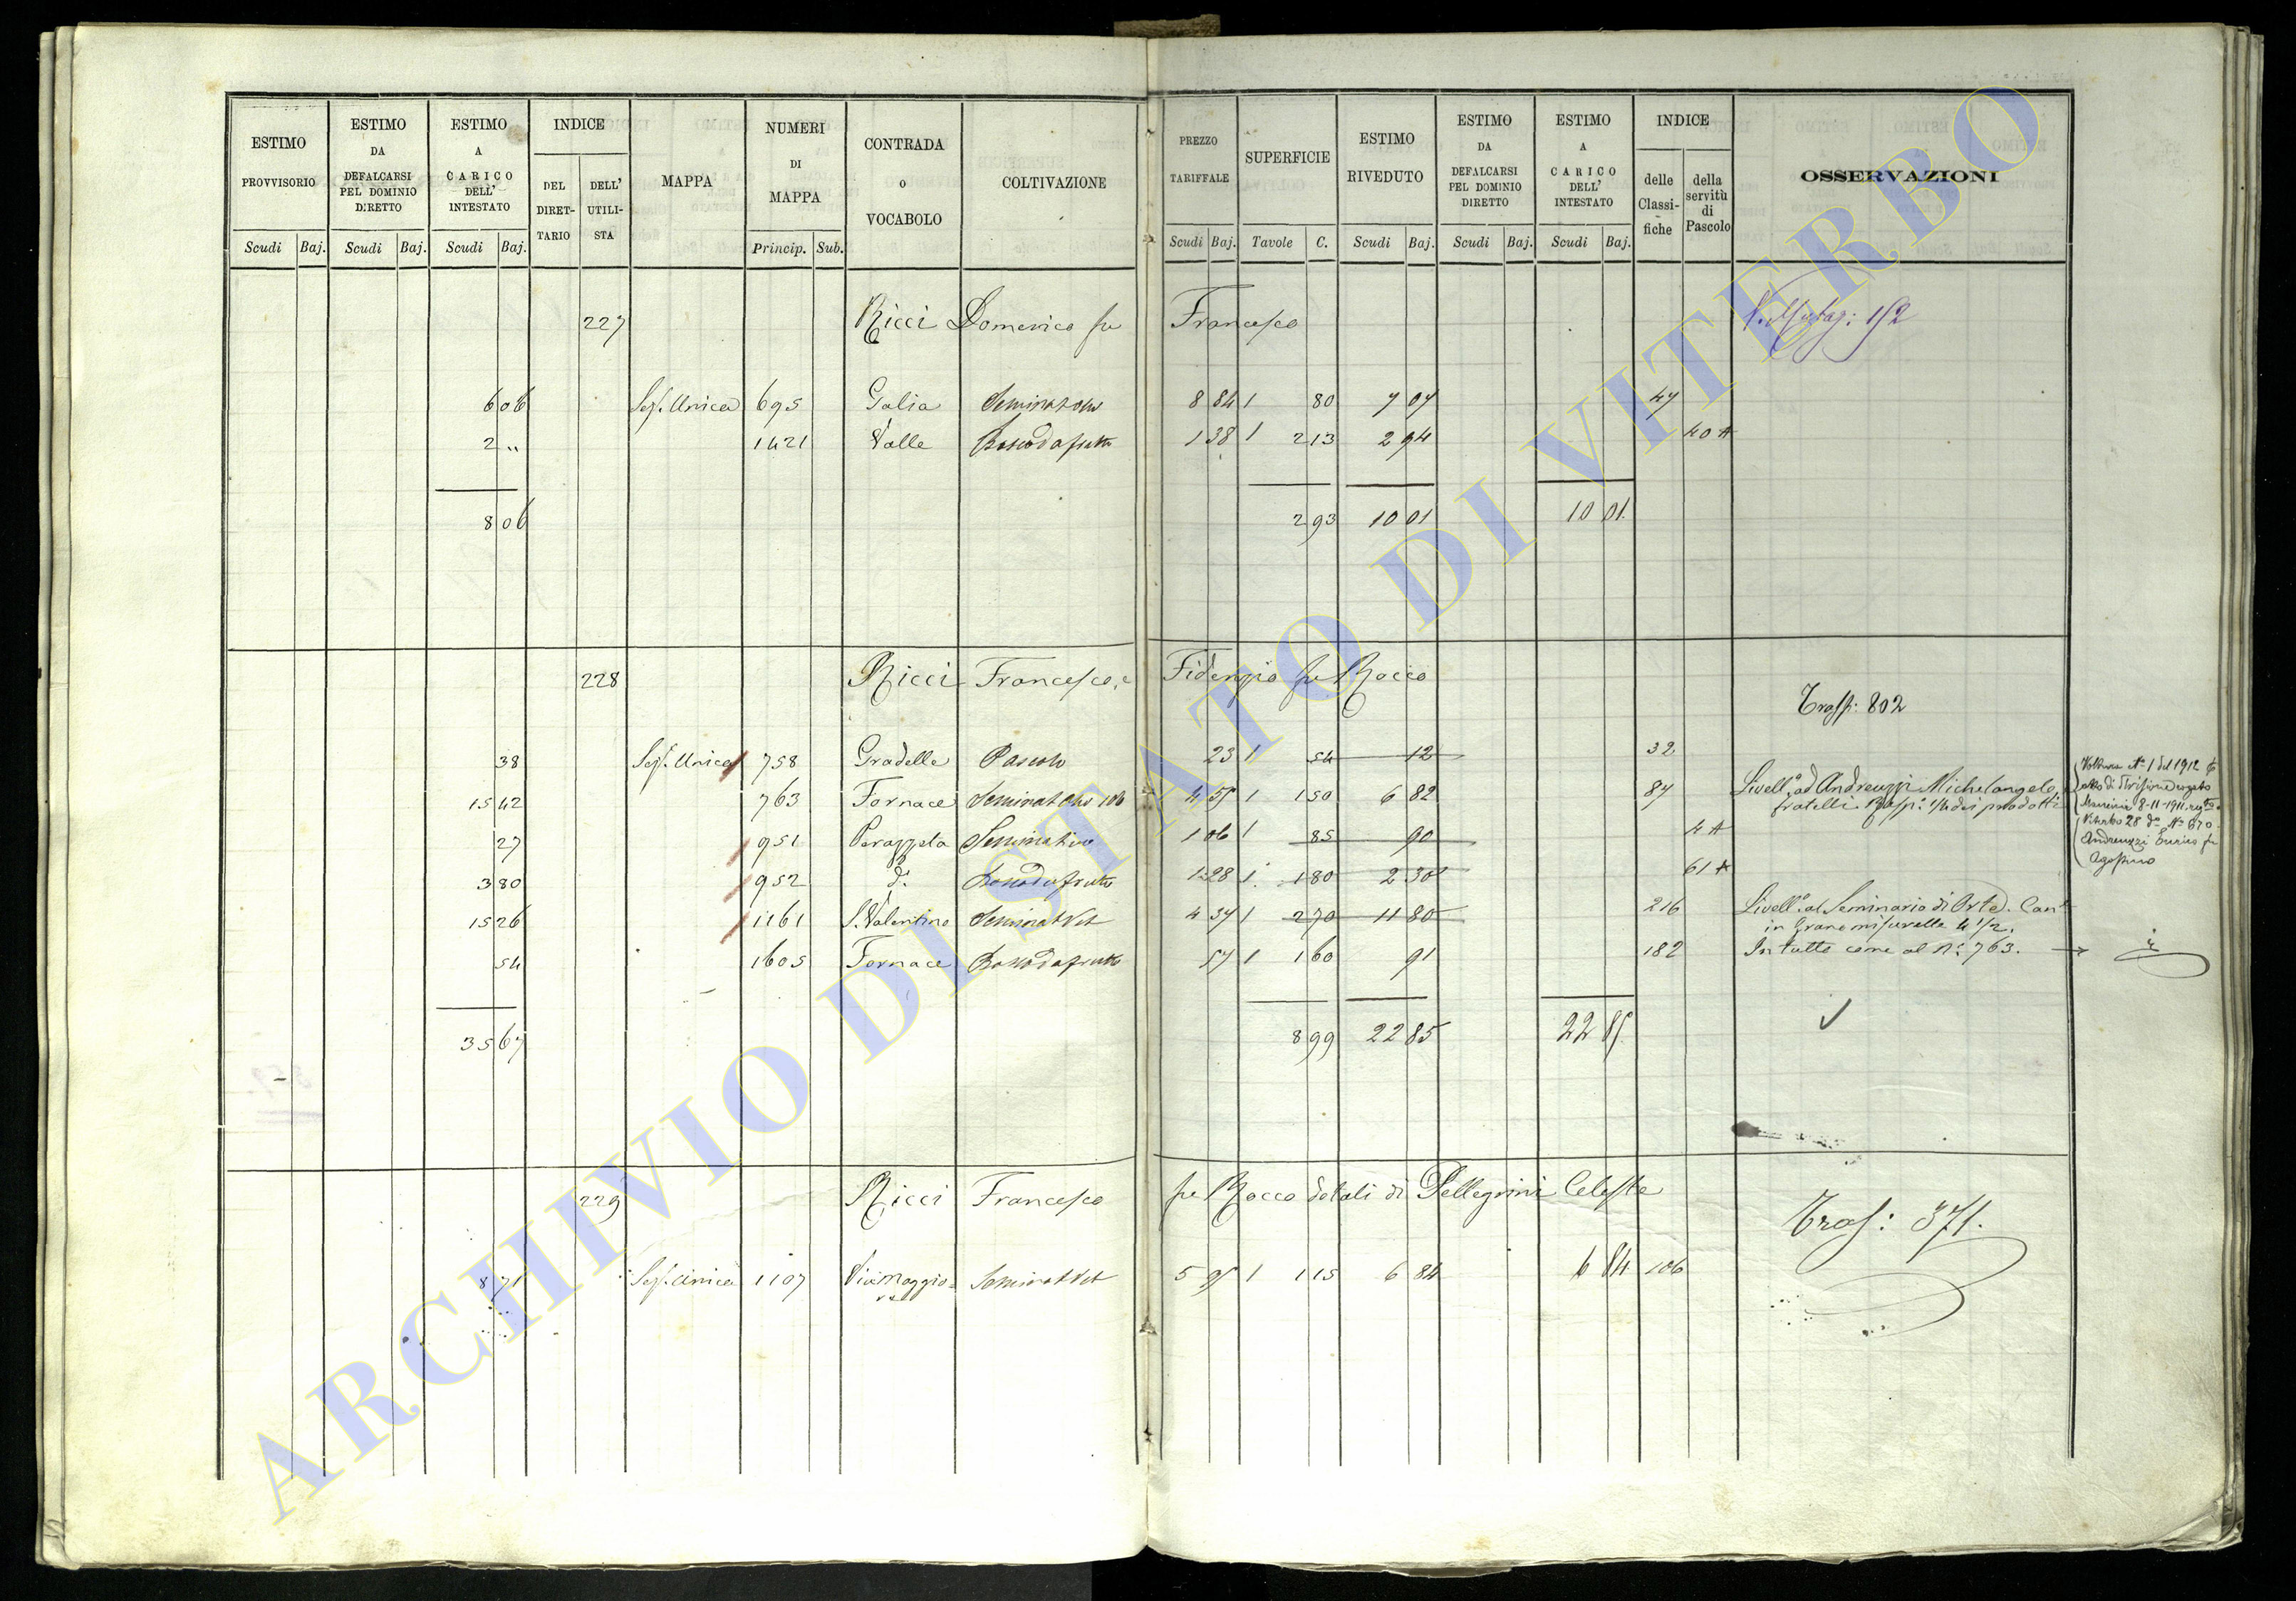 ESTIMO PROVVISORIO | ESTIMO DA DEFALCARSI PEL DOMINIO DIRETTO | ESTIMO A CARICO DELL' INTESTATO | INDICE | MAPPA | NUMERI DI MAPPA | CONTRADA O VOCABOLO | COLTIVAZIONE | PREZZO TARIFFALE | SUPERFICIE | ESTIMO RIVEDUTO | ESTIMO DA DEFALCARSI PEL DOMINIO DIRETTO | ESTIMO A CARICO DELL' INTESTATO | INDICE | OSSERVAZIONI
DEL DIRETTARIO | DELL' UTILISTA | delle Classifiche | della servitù di Pascolo
Scudi | Baj. | Scudi | Baj. | Scudi | Baj. | Princip. | Sub. | Scudi | Baj. | Tavole | C. | Scudi | Baj. | Scudi | Baj. | Scudi | Baj.
227 Ricci Domenico fu Francesco
6 06 Sez. Unica 695 Galia Seminativo 8 84 1 80 7 07 47
2 " 1421 Valle Bosco da frutto 1 38 1 2 13 2 94 40 A
8 06 2 93 10 01 10 01
228 Ricci Francesco, e Fidenzio fu Rocco Trasp: 802
38 Sez. Unica 758 Gradelle Pascolo 23 1 54 12 32
15 42 763 Fornace Seminativo 4 55 1 1 50 6 82 87 Livell.º ad Andreuzzi Michelangelo, e
fratelli. Risp.ª 1/4 dei prodotti
27 951 Perazzeta Seminativo 1 06 1 85 90 4 A
3 80 952 d.º Bosco da frutto 1 28 1 1 80 2 30 61 A
15 26 1161 S. Valentino Seminat Vit 4 37 1 2 70 11 80 216 Livell.º al Seminario di Orte. Can.e
in Grano misurelle 4 1/2.
54 1605 Fornace Bosco da frutto 57 1 1 60 91 182 In tutto come al N.º 763.
Voltura N.º 1 del 1912
atto di Divisione rogato
8-11-1911
Viterbo 28 dº Nº 670
Andreuzzi Enrico fu
Agostino
35 67 8 99 22 85 22 85
229 Ricci Francesco fu Rocco dotali di Pellegrini Celeste Trasp: 371.
8 71 Sez. Unica 1107 Via maggiore Seminat Vit 5 95 1 1 15 6 84 6 84 106
ARCHIVIO DI STATO DI VITERBO